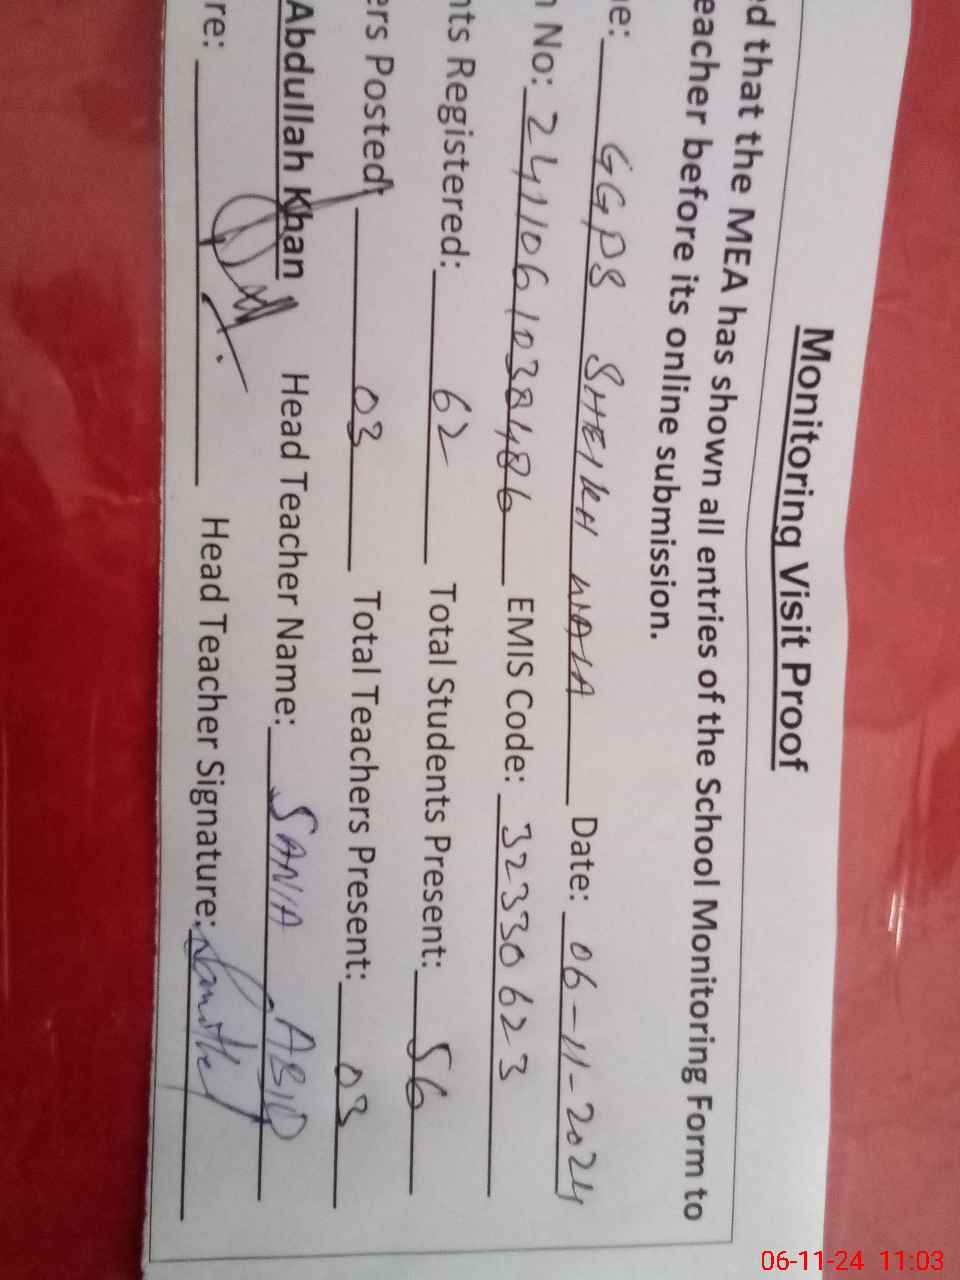 Monitoring Visit Proof
ed that the MEA has shown all entries of the School Monitoring Form to
eacher before its online submission.
e: GGPS SHEIKH WALA Date: 06-11-2024
n No: 2411061038486 EMIS Code: 32330623
nts Registered: 62 Total Students Present: 56
ers Posted 03 Total Teachers Present: 03
Abdullah Khan Head Teacher Name: SANIA ABID
re: Head Teacher Signature:
06-11-24 11:03